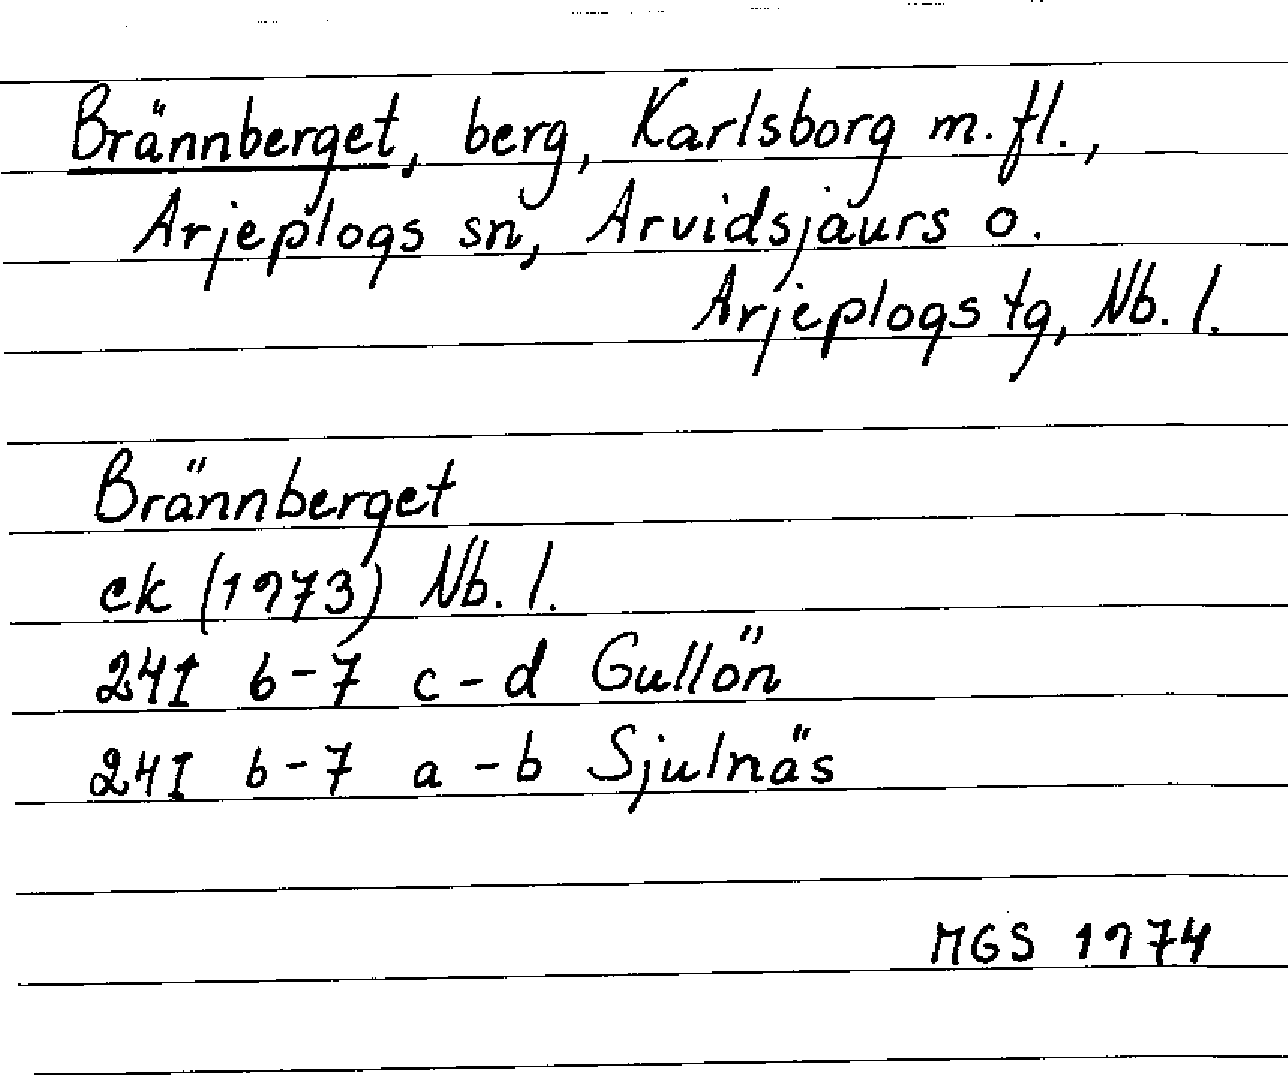 Brännberget, berg, Karlsborg m. fl.,
Arjeplogs sn, Arvidsjaurs o.
Arjeplogs tg, Nb. l.
Brännberget
ek (1973) Nb. l.
24I 6-7 c-d Gullön
24I 6-7 a-b Sjulnäs
MGS 1974